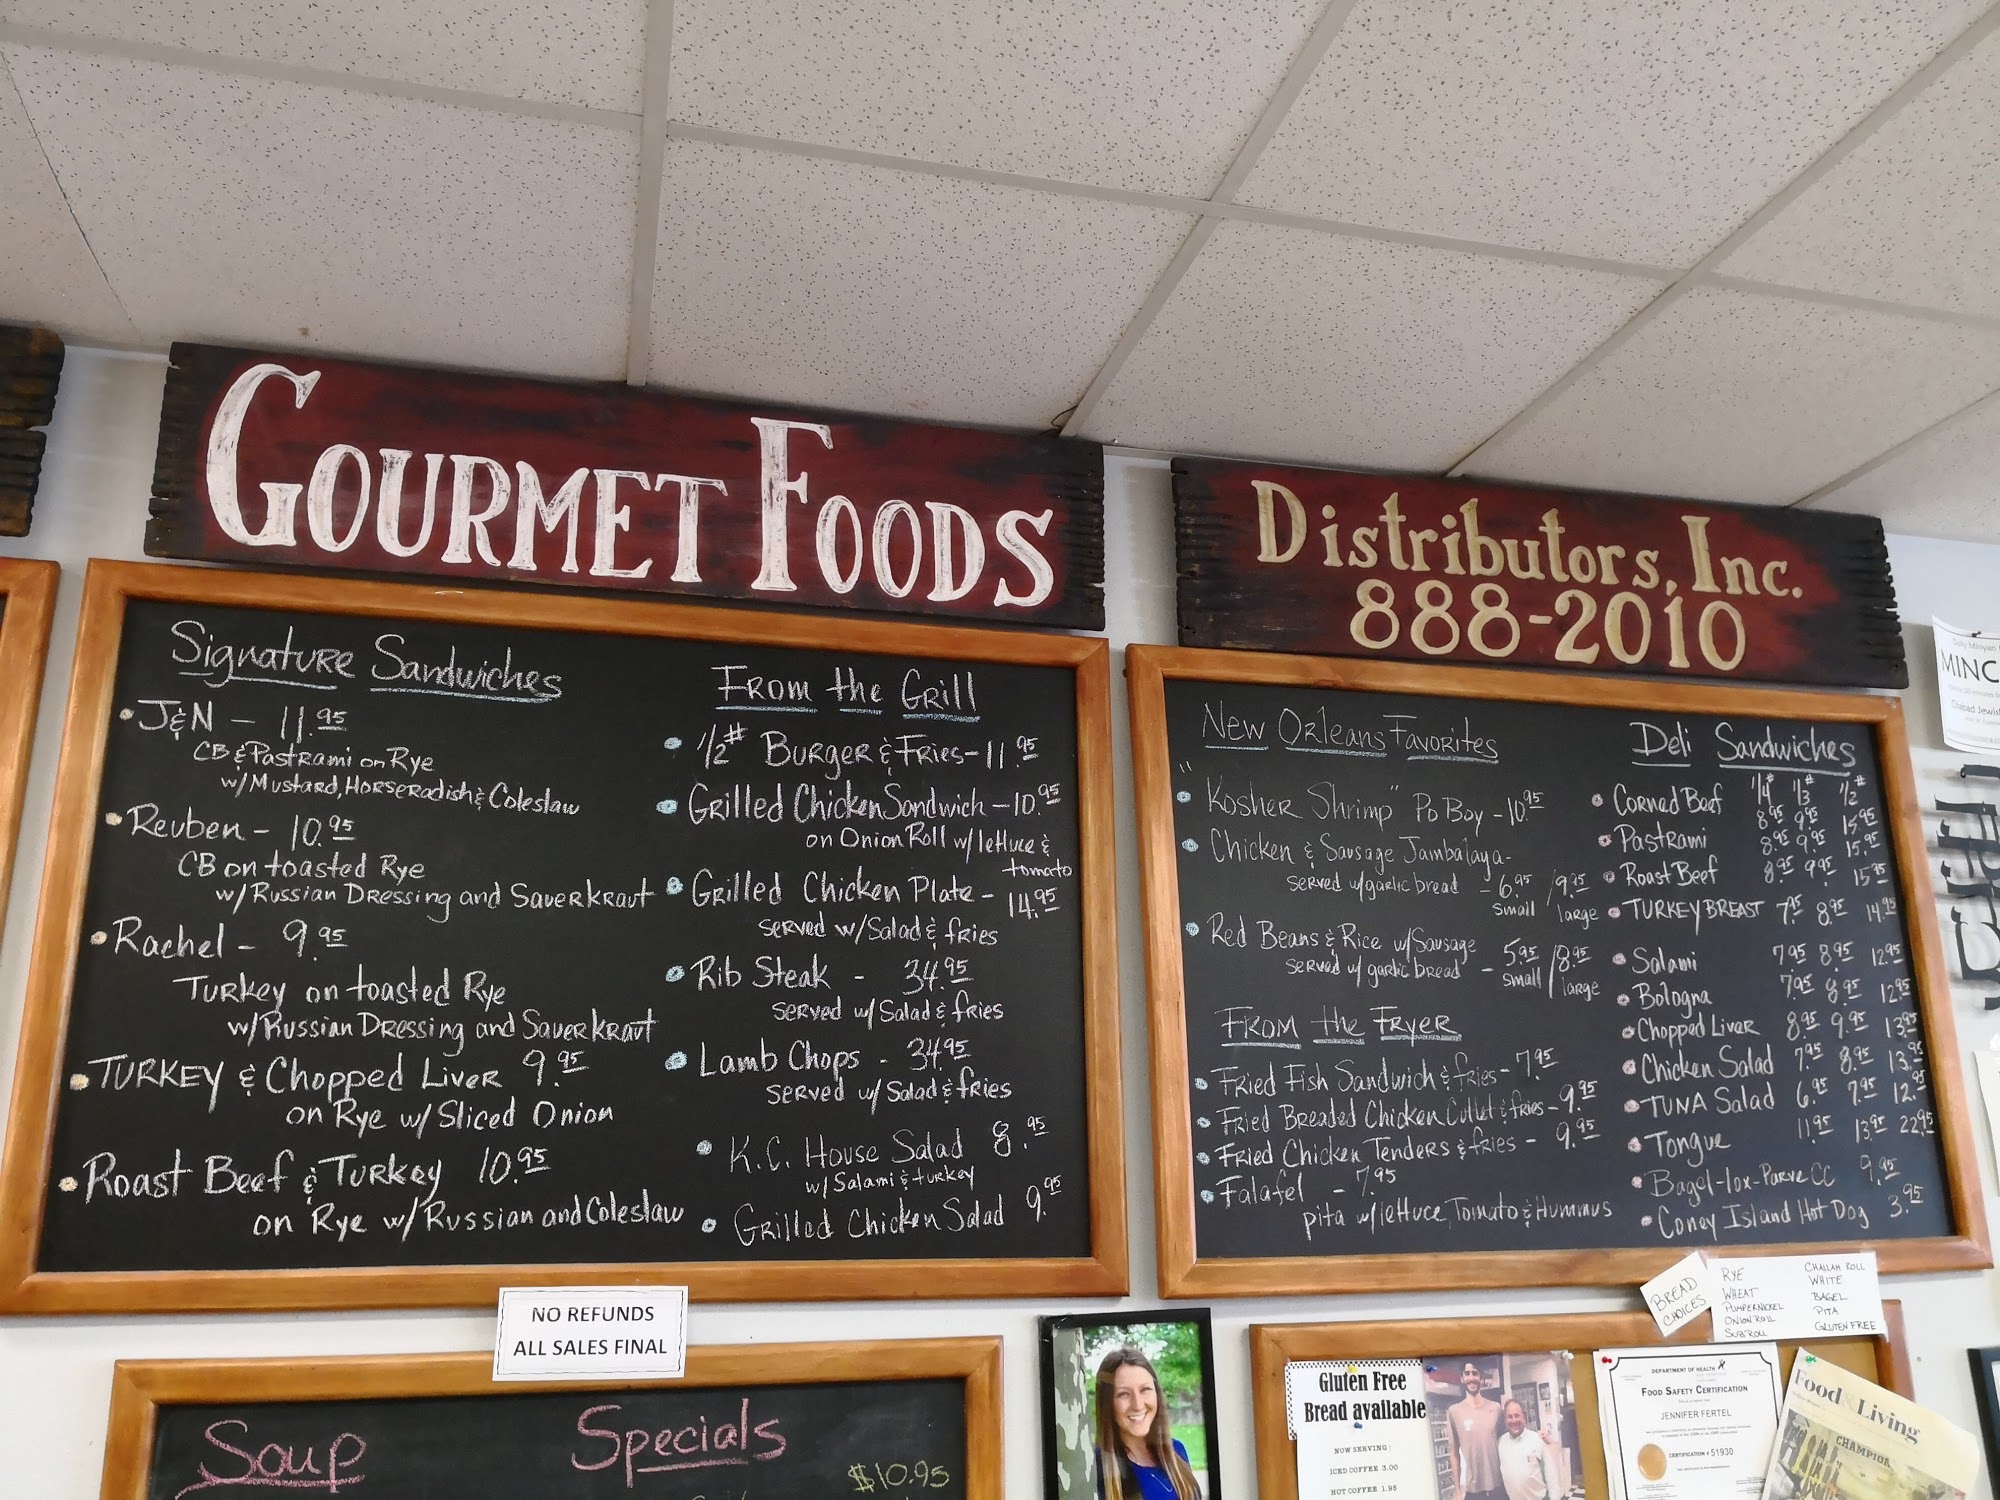 GOURMET FOODS
Distributors, Inc.
888-2010
Signature Sandwiches
J&N - 11.95
CB & Pastrami on Rye
w/ Mustard, Horseradish & Coleslaw
Reuben - 10.95
CB on toasted Rye
w/ Russian Dressing and Sauerkraut
Rachel - 9.95
Turkey on toasted Rye
w/ Russian Dressing and Sauerkraut
Turkey & Chopped Liver 9.95
on Rye w/ Sliced Onion
Roast Beef & Turkey 10.95
on Rye w/ Russian and Coleslaw
From the Grill
1/2# Burger & Fries - 11.95
Grilled Chicken Sandwich - 10.95
on Onion Roll w/ lettuce &
tomato
Grilled Chicken Plate - 14.95
served w/ Salad & fries
Rib Steak - 34.95
served w/ Salad & fries
Lamb Chops - 34.95
served w/ Salad & fries
K.C. House Salad 8.95
w/ Salami & turkey
Grilled Chicken Salad 9.95
New Orleans Favorites
"Kosher Shrimp" Po Boy - 10.95
Chicken & Sausage Jambalaya -
served w/ garlic bread - 6.95 / 9.95
small / large
Red Beans & Rice w/ Sausage
served w/ garlic bread - 5.95 / 8.95
small / large
From the Fryer
Fried Fish Sandwich & fries - 7.95
Fried Breaded Chicken Cutlet & fries - 9.95
Fried Chicken Tenders & fries - 9.95
Falafel - 7.95
pita w/ lettuce, Tomato & Hummus
Deli Sandwiches
1/4# 1/3# 1/2#
Corned Beef 8.95 9.95 15.95
Pastrami 8.95 9.95 15.95
Roast Beef 8.95 9.95 15.95
Turkey Breast 7.95 8.95 14.95
Salami 7.95 8.95 12.95
Bologna 7.95 8.95 12.95
Chopped Liver 8.95 9.95 13.95
Chicken Salad 7.95 8.95 13.95
Tuna Salad 6.95 7.95 12.95
Tongue 11.95 13.95 22.95
Bagel-lox-Parve CC 9.95
Coney Island Hot Dog 3.95
NO REFUNDS
ALL SALES FINAL
Soup
Specials
$10.95
BREAD
CHOICES
RYE
WHEAT
PUMPERNICKEL
ONION ROLL
SUB ROLL
CHALLAH ROLL
WHITE
BAGEL
PITA
GLUTEN FREE
Gluten Free
Bread available
NOW SERVING:
ICED COFFEE 3.00
HOT COFFEE 1.95
DEPARTMENT OF HEALTH
FOOD SAFETY CERTIFICATION
JENNIFER FERTEL
CERTIFICATION # 51930
Food & Living
CHAMPION
Daily Minyan
MINC
Chabad Jewish